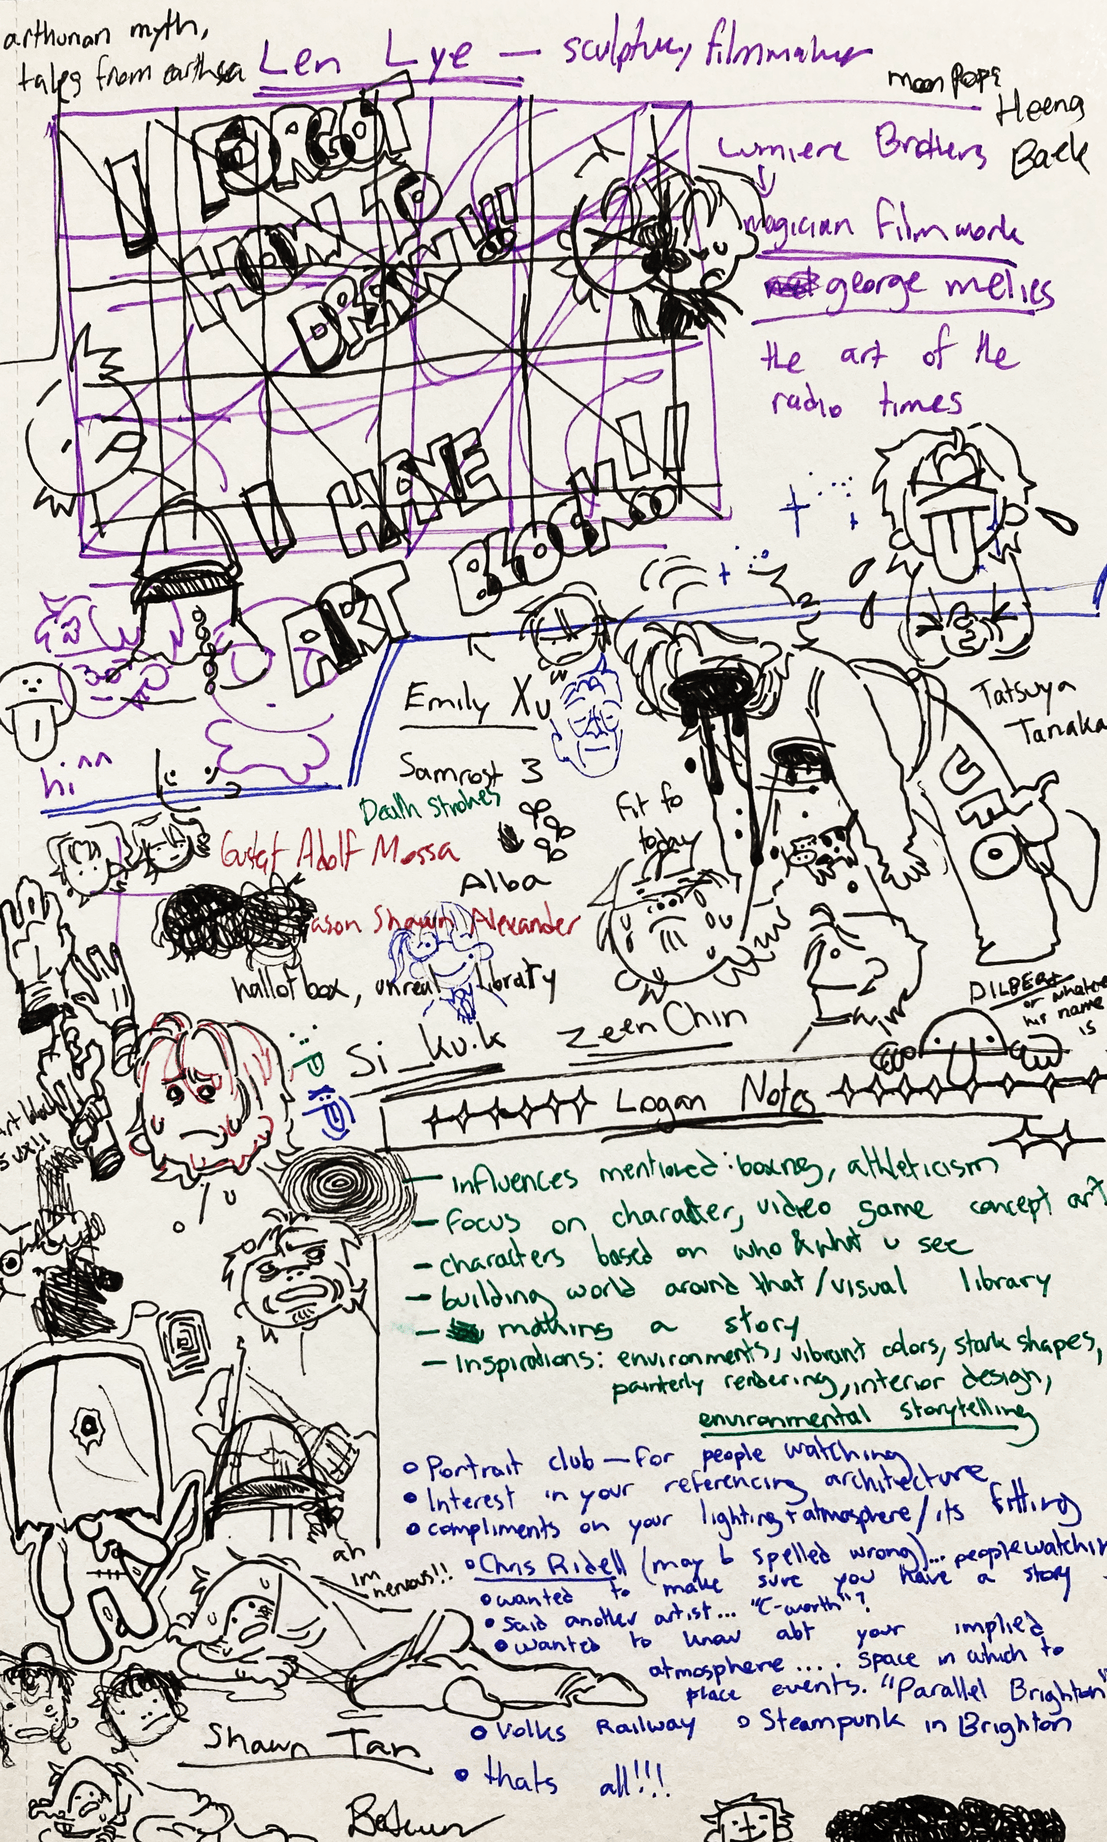 arthurian myth,
tales from earthsea
Len Lye — sculpture, filmmaker
moon pope
Heena
Baek
Lumiere Brothers
magician filmwork
george melies
the art of the
radio times
I FORGOT
HOW TO
DRAW!!
I HAVE
ART BLOCK!!
hi^^
Emily Xu
Samrost 3
Death Strokes
Fit for
today
Tatsuya
Tanaka
UFO
Gustaf Adolf Mossa
Alba
Jason Shawn Alexander
hallot box, unreal library
Si_ku.k
Zeen Chin
DILBERT
or whatever
his name
is
:P
art block
sux!!
Logan Notes
— influences mentioned: boxing, athleticism
— Focus on character, video game concept art
— characters based on who & what u see
— building world around that/visual library
— mathing a story
— Inspirations: environments, vibrant colors, stark shapes,
painterly rendering, interior design,
environmental storytelling
• Portrait club — for people watching
• Interest in your referencing architecture
• compliments on your lighting + atmosphere/its fitting
• Chris Ridell (may b spelled wrong)... people watching
• wanted to make sure you have a story
• Said another artist... "C-worth"?
• wanted to know abt your implied
atmosphere .... space in which to
place events. "Parallel Brighton"
• Volks Railway • Steampunk in Brighton
• thats all!!!
ah
im
nervous!!
Shawn Tan